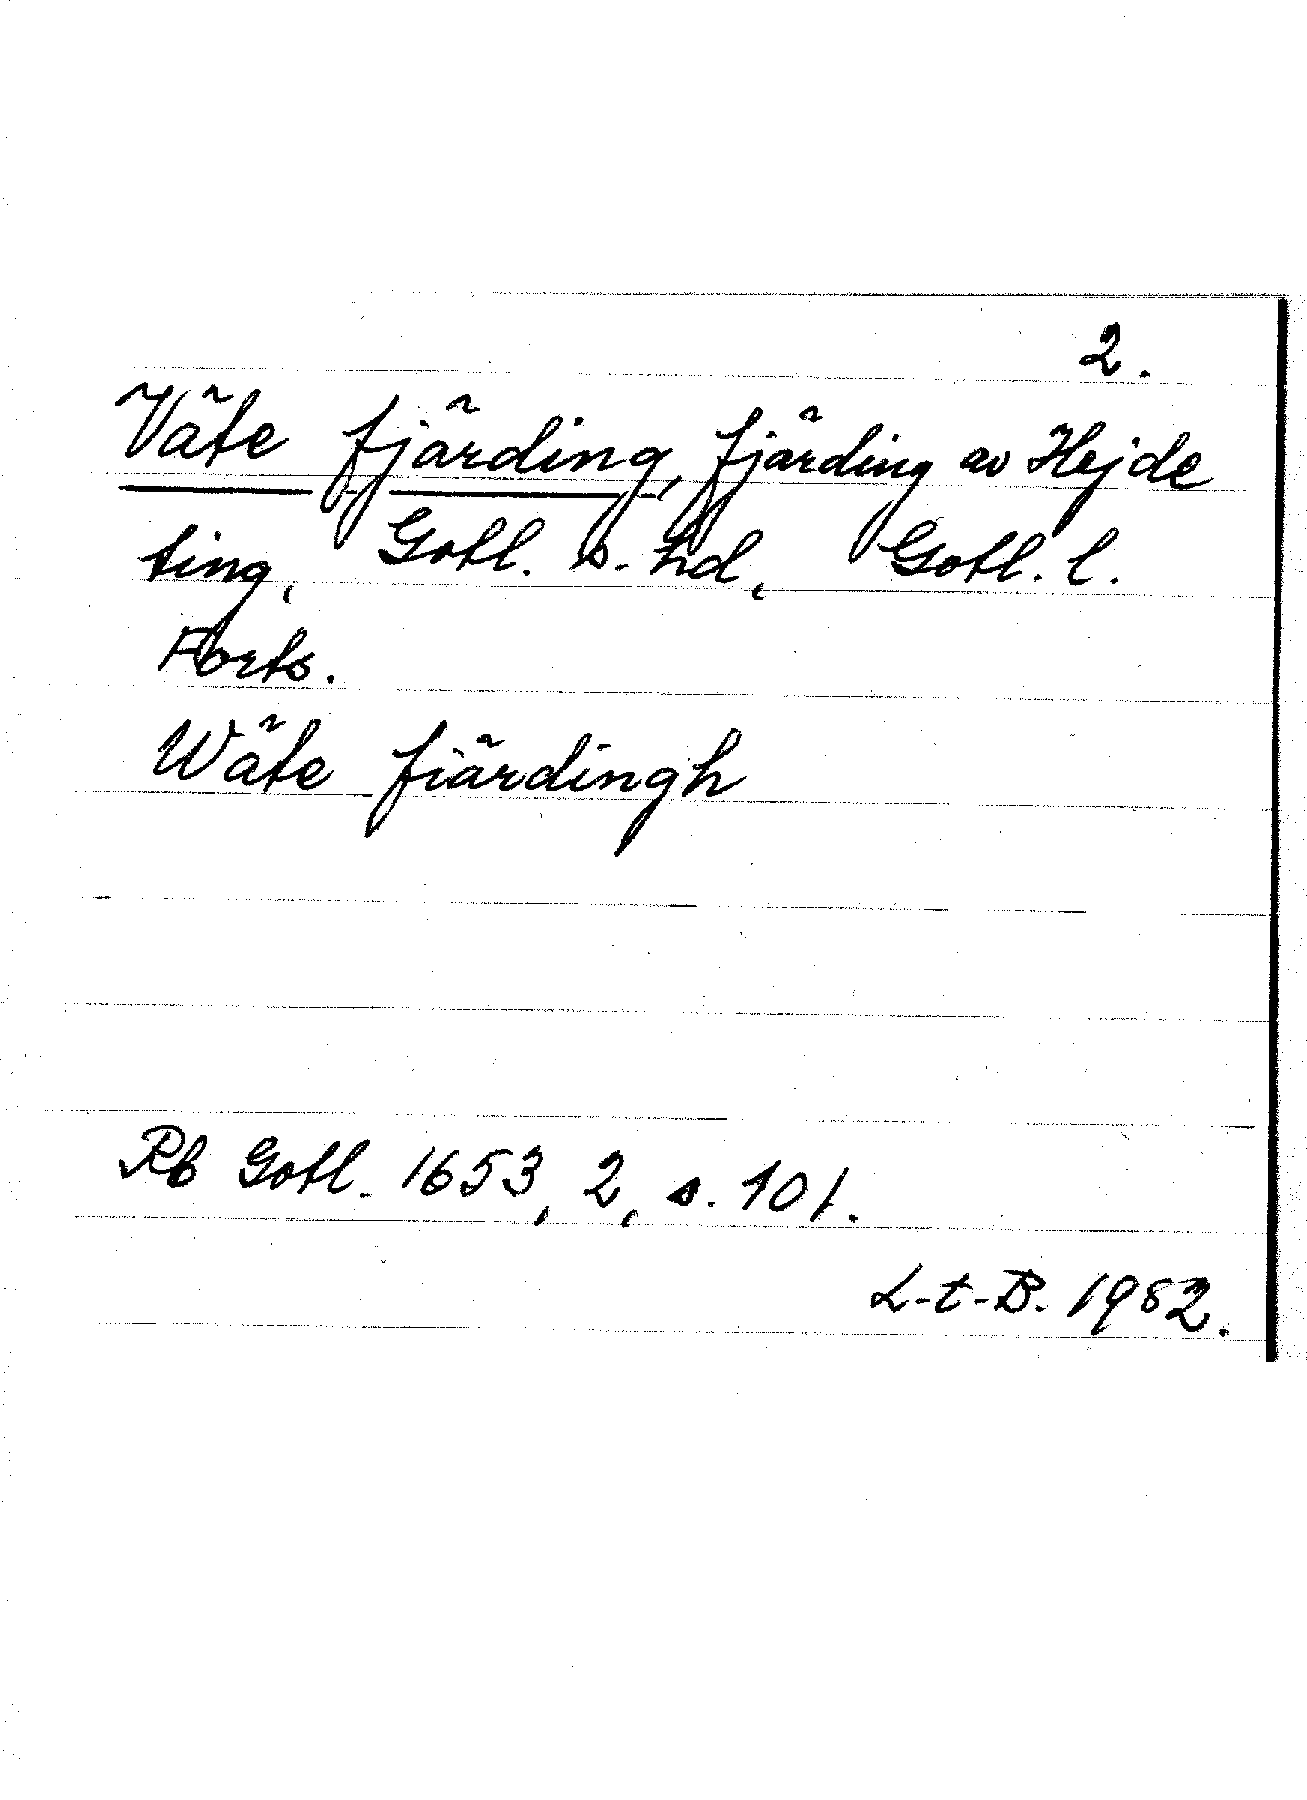 2.
Väte fjärding, fjärding av Hejde
ting, Gotl. s. hd, Gotl. l.
Forts.
Wäte fiärdingh
Rb Gotl. 1653, 2, s. 101.
L-t-B. 1952.